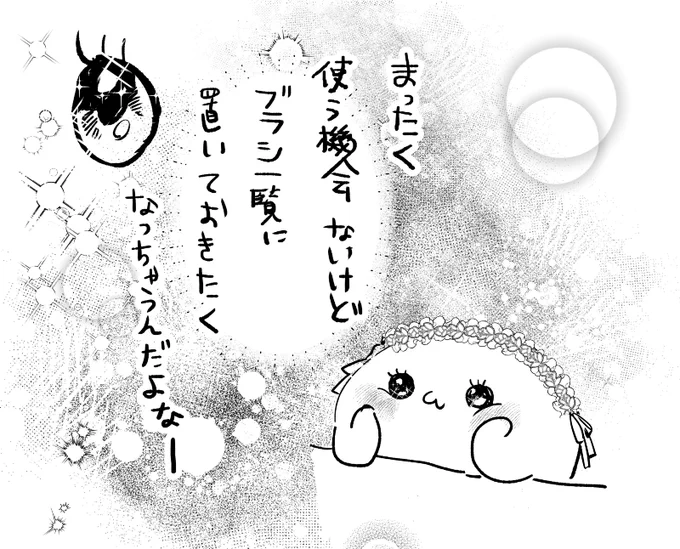 まったく
使う機会ないけど
ブラシ一覧に
置いておきたく
なっちゃうんだよなー